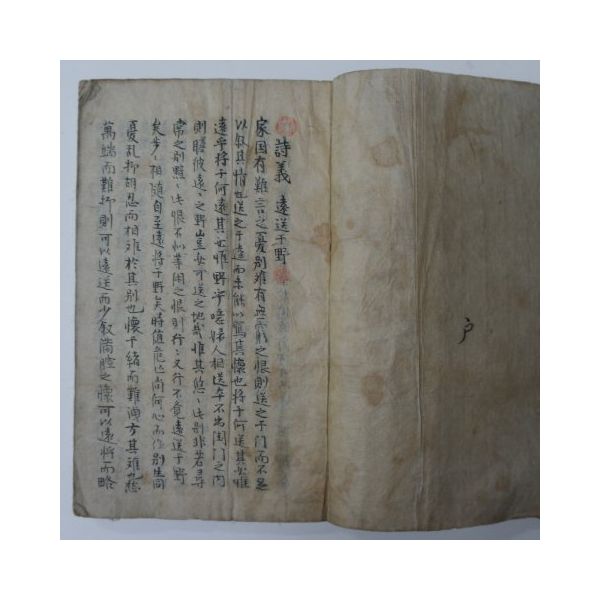 詩義 遠送于野
家国有難言之憂別難有無窮之恨則送之于門而不足
以叙其情也送之于遠而未能以寫其懷也將于何送其必惟
遠乎將于何遠其必惟野乎噫婦人相送本不出閨門之內
則瞻彼遠之野豈必可送之地哉惟其悠此別非若尋
常之別此恨不似等閑之恨則行又行不覺遠送于野
矣步相隨自至遠將于野矣時値危亡尚何心而作別生同
憂乱抑胡忍而相難於其別也懷千緖而難洩方其難也愁
萬端而難抑則可以遠送而少叙滿腔之懷可以遠將而略
戶